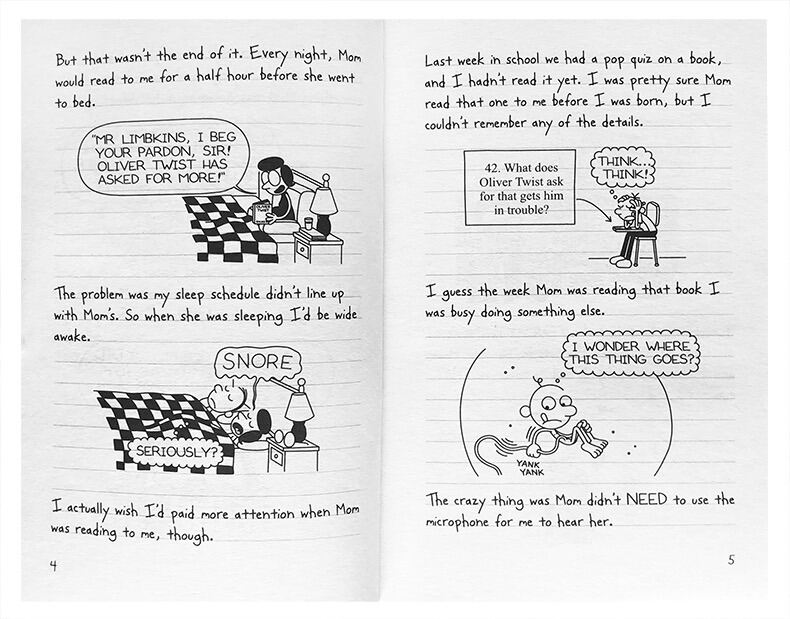 But that wasn't the end of it. Every night, Mom
would read to me for a half hour before she went
to bed.
"MR LIMBKINS, I BEG
YOUR PARDON, SIR!
OLIVER TWIST HAS
ASKED FOR MORE!"
The problem was my sleep schedule didn't line up
with Mom's. So when she was sleeping I'd be wide
awake.
SNORE
SERIOUSLY?
I actually wish I'd paid more attention when Mom
was reading to me, though.
4
Last week in school we had a pop quiz on a book,
and I hadn't read it yet. I was pretty sure Mom
read that one to me before I was born, but I
couldn't remember any of the details.
42. What does
Oliver Twist ask
for that gets him
in trouble?
THINK...
THINK!
I guess the week Mom was reading that book I
was busy doing something else.
I WONDER WHERE
THIS THING GOES?
YANK
YANK
The crazy thing was Mom didn't NEED to use the
microphone for me to hear her.
5